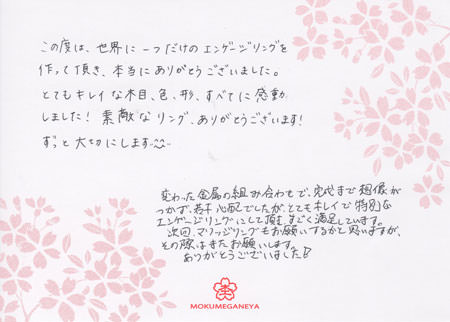 この度は、世界に一つだけのエンゲージリングを
作って頂き、本当にありがとうございました。
とてもキレイな木目、色、形、すべてに感動
しました！素敵なリング、ありがとうございます！
ずっと大切にします
変わった金属の組み合わせで、完成まで想像が
つかず、若干心配でしたが、とてもキレイで特別な
エンゲージリングにして頂き、すごく満足しています。
次回、マリッジリングもお願いするかと思いますが、
その際はまたお願いします。
ありがとうございました！
MOKUMEGANEYA